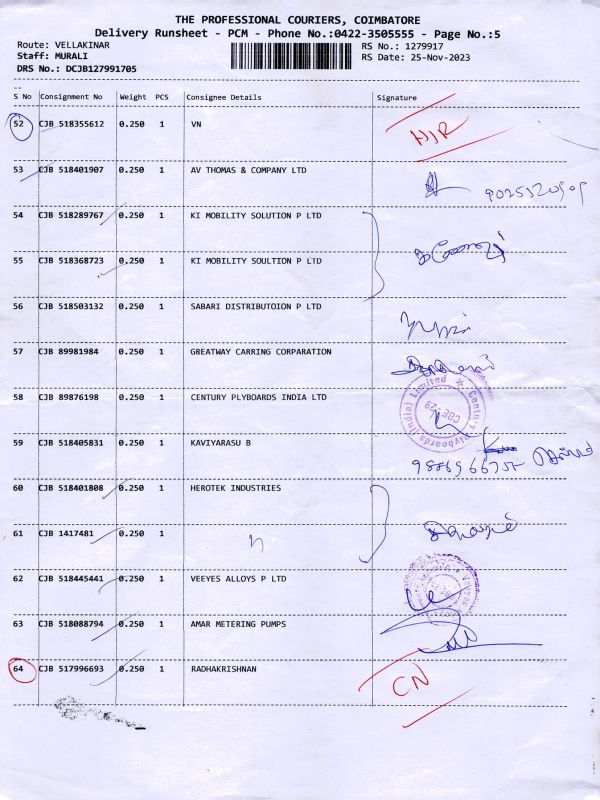 THE PROFESSIONAL COURIERS, COIMBATORE
Delivery Runsheet - PCM - Phone No.:0422-3505555 - Page No.:5
Route: VELLAKINAR RS No.: 1279917
Staff: MURALI RS Date: 25-Nov-2023
DRS No.: DCJB127991705
S No Consignment No Weight PCS Consignee Details Signature
52 CJB 518355612 0.250 1 VN
53 CJB 518401907 0.250 1 AV THOMAS & COMPANY LTD
54 CJB 518289767 0.250 1 KI MOBILITY SOLUTION P LTD
55 CJB 518368723 0.250 1 KI MOBILITY SOULTION P LTD
56 CJB 518503132 0.250 1 SABARI DISTRIBUTOION P LTD
57 CJB 89981984 0.250 1 GREATWAY CARRING CORPARATION
58 CJB 89876198 0.250 1 CENTURY PLYBOARDS INDIA LTD
Century Plyboards (India) Limited
CBE-29
59 CJB 518405831 0.250 1 KAVIYARASU B
60 CJB 518401808 0.250 1 HEROTEK INDUSTRIES
61 CJB 1417481 0.250 1
62 CJB 518445441 0.250 1 VEEYES ALLOYS P LTD
63 CJB 518088794 0.250 1 AMAR METERING PUMPS
64 CJB 517996693 0.250 1 RADHAKRISHNAN CN